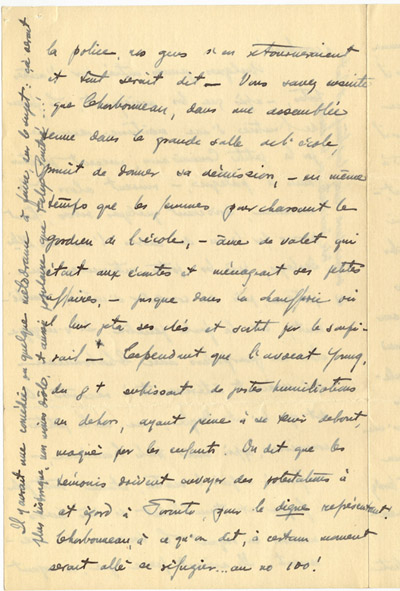 la police, nos gens s'en retourneraient
et tout serait dit — Vous savez ensuite
que Charbonneau, dans une assemblée
tenue dans la grande salle de l'école,
promit de donner sa démission, — en même
temps que les femmes pourchassant le
gardien de l'école, — âme de valet qui
était aux écoutes et ménageait ses petites
affaires, — jusque dans la chaufferie où
il leur jeta ses clés et sortit par le soupi-
rail — Cependant que l'avocat
du gt subissait de justes humiliations
au dehors, ayant peine à se tenir debout,
par les enfants. On dit que les
témoins doivent envoyer des protestations à
et à Toronto, pour le digne représentant.
Charbonneau, à ce qu'on dit, à certain moment
serait allé se réfugier... au no 100!
Il y aurait une comédie ou quelque mélodrame à faire sur le sujet: ça serait
plus historique, non moins drôle, et aussi populaire que